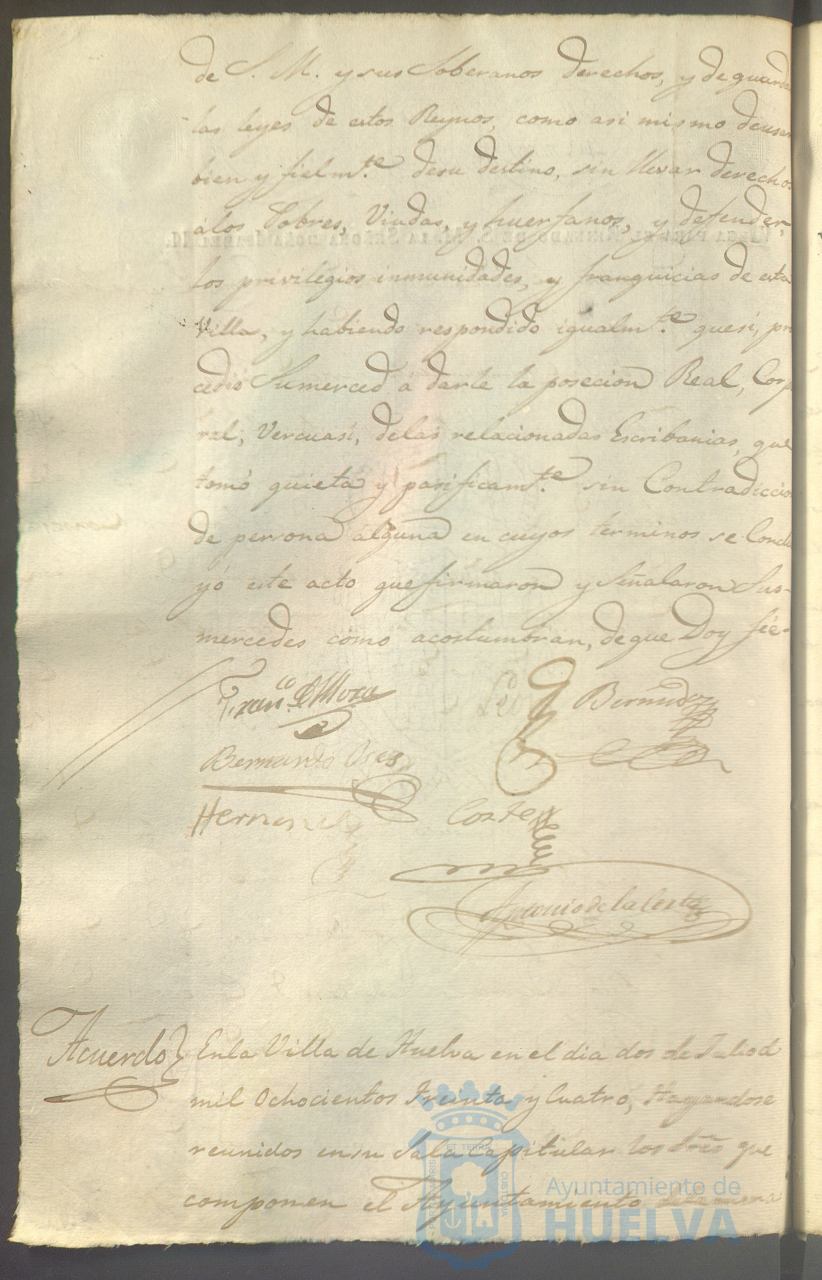 de S. M. y sus Soberanos derechos, y de guarda
las leyes de estos Reynos, como asi mismo deusar
bien y fielmte. desu destino, sin llevar derechos
álos Pobres, Viudas, y huerfanos, y defender,
los privilegios inmunidades, y franquicias de esta
Villa, y habiendo respondido igualmte. quesi, pro
cedio Sumerced á darle la posecion Real, Corpo
ral, Vercuasi, delas relacionadas Escribanias, que
tomó quieta y pasificamte. sin Contradiccio
de persona alguna en cuyos terminos se Conclu
yó este acto que firmaron y Señalaron Sus-
mercedes como acostumbran, deque Doy fée-
Franco. Mora
Bermudz
Bernardo
Hernandez
Cortes
Antonio de la Corte
Acuerdo
Enla Villa de Huelva en el dia dos de Julio d
mil Ochocientos Treinta y Cuatro, Hayandose
reunidos en su Sala Capitular los Sres que
componen el Ayuntamiento de la misma
Ayuntamiento de
HUELVA